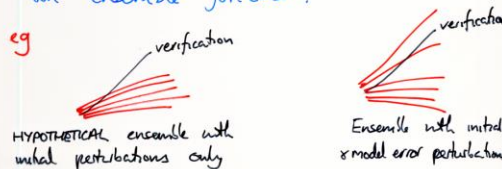 ensemble
eg
verification
verification
HYPOTHETICAL ensemble with
initial perturbations only
Ensemble with initial
& model error perturbation